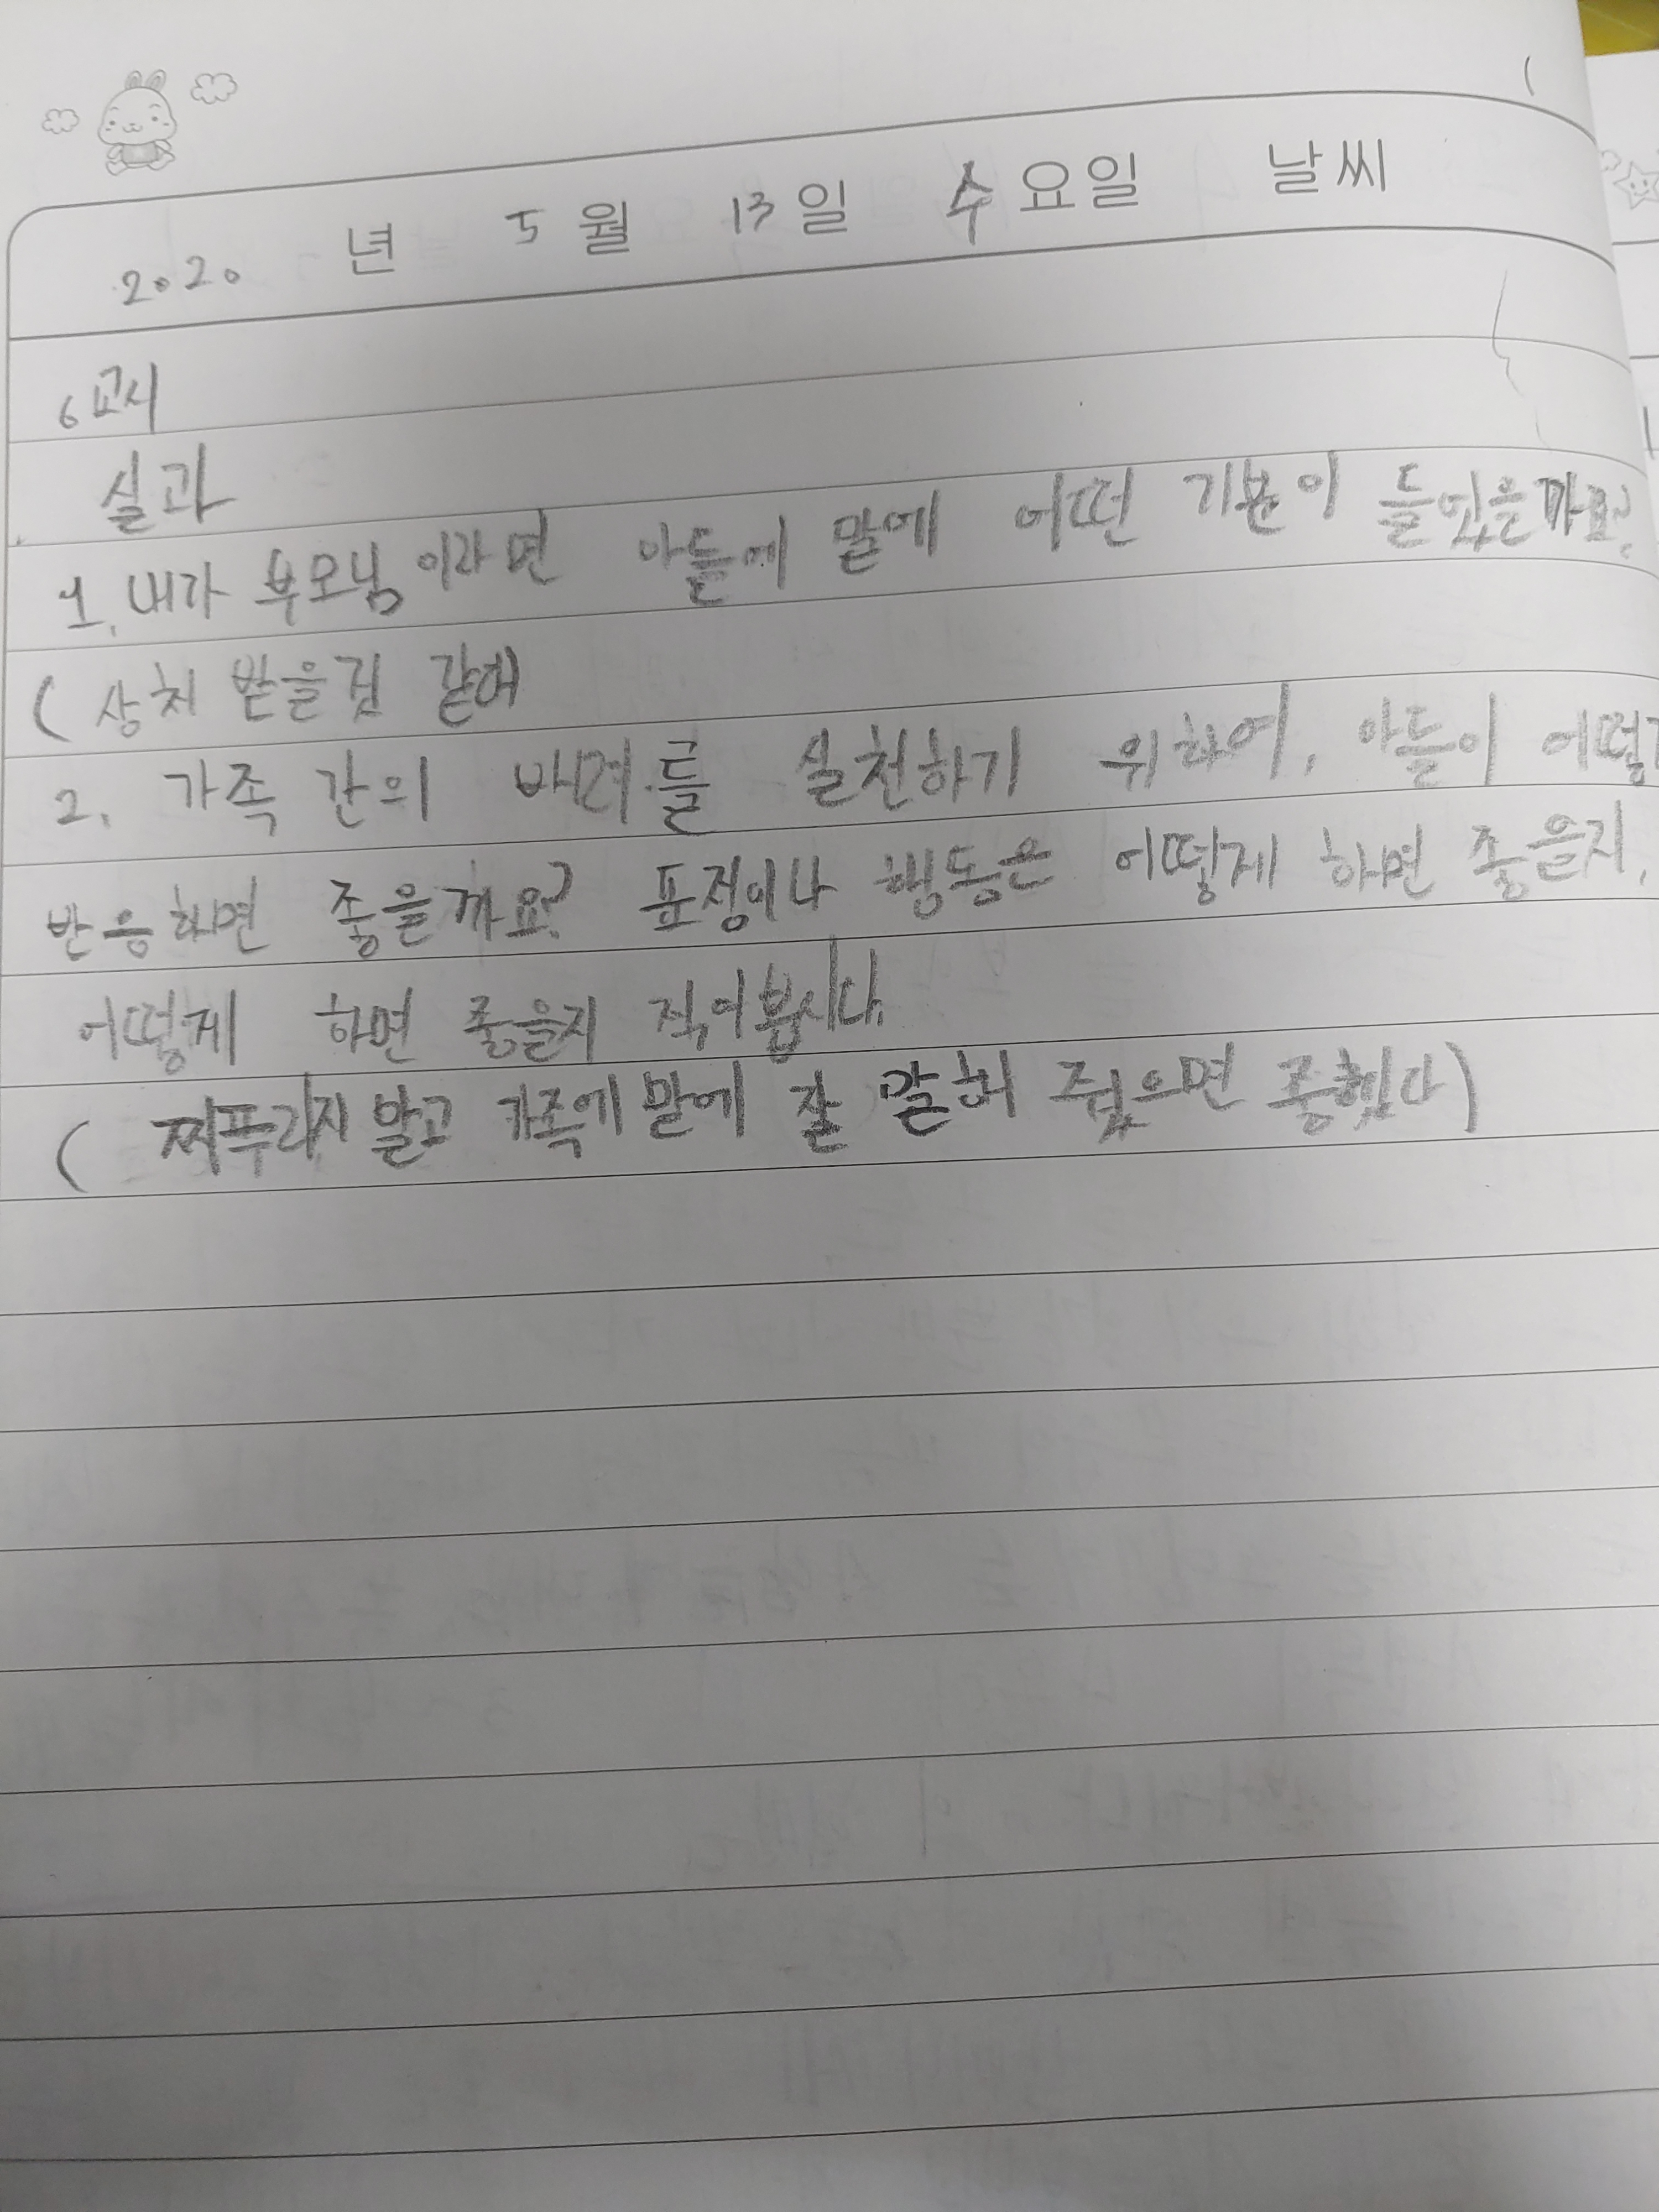 2020 년 5 월 13 일 수 요일 날씨
6교시
실과
1. 내가 부모님이라면 아들에 말에 어떤 기분이 들었을까요?
( 상처 받을것 같애
2. 가족 간의 배려를 실천하기 위하여, 아들이 어떻게
반응하면 좋을까요? 표정이나 행동은 어떻게 하면 좋을지,
어떻게 하면 좋을지 적어봅시다.
( 찌푸리지 말고 가족에 말에 잘 말해 줬으면 좋했다)